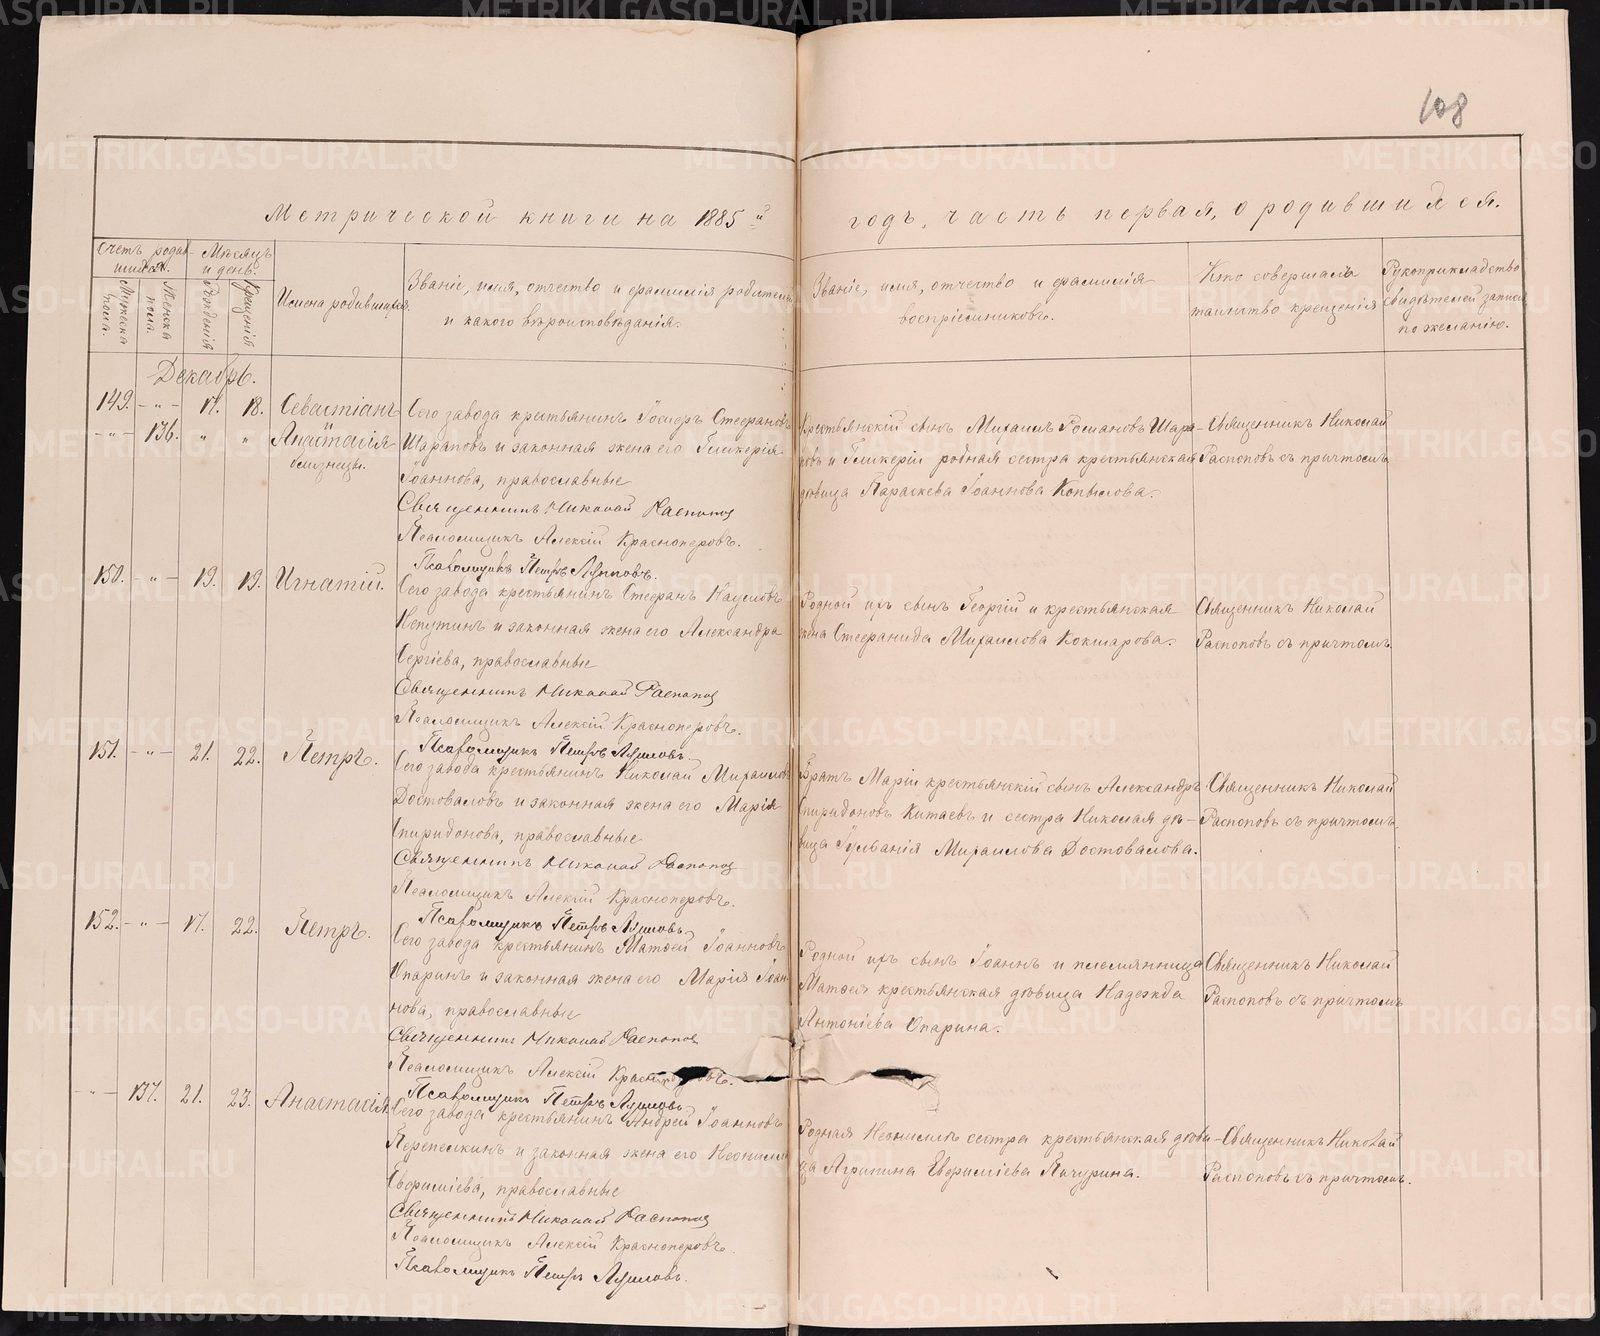 108
Метрической книги на 1885й годъ, часть первая, о родившихся.
Счетъ родив-
шихся.
Мужеска пола.
Женска пола.
Мѣсяцъ и день.
Рожденія
Крещенія
Имена родившихся.
Званіе, имя, отчество и фамилія родителей
и какого вѣроисповѣданія.
Званіе, имя, отчество и фамилія
воспріемниковъ.
Кто совершалъ
таинство крещенія
Рукоприкладство
свидѣтелей записи
по желанію.
Декабрь.
149. - " - 17. 18. Севастіанъ
- " - 136. " " Анастасія
близнецы.
Сего завода крестьянинъ Іосифъ Стефановъ
Шараповъ и законная жена его Гликерія
Іоаннова, православные
Священникъ Николай Распоповъ
Псаломщикъ Алексій Красноперовъ.
Псаломщикъ Петръ
Крестьянскій сынъ Михаилъ Романовъ Шара-
повъ и Гликеріи родная сестра крестьянская
дѣвица Параскева Іоаннова Копылова.
Священникъ Николай
Распоповъ съ причтомъ
150. - " - 19. 19. Игнатій.
Сего завода крестьянинъ Стефанъ Наумовъ
Кепутинъ и законная жена его Александра
Сергіева, православные
Священникъ Николай Распоповъ
Псаломщикъ Алексій Красноперовъ.
Псаломщикъ Петръ
Родной ихъ сынъ Георгій и крестьянская
жена Стефанида Михаилова Кокшарова.
Священникъ Николай
Распоповъ съ причтомъ
151. - " - 21. 22. Петръ.
Сего завода крестьянинъ Николай Михаиловъ
Достоваловъ и законная жена его Марія
Спиридонова, православные
Священникъ Николай Распоповъ
Псаломщикъ Алексій Красноперовъ.
Псаломщикъ Петръ
Братъ Маріи крестьянскій сынъ Александръ
Спиридоновъ Китаевъ и сестра Николая дѣ-
вица Іуліанія Михаилова Достовалова.
Священникъ Николай
Распоповъ съ причтомъ
152. - " - 17. 22. Петръ.
Сего завода крестьянинъ Матѳей Іоанновъ
Опаринъ и законная жена его Марія Іоан-
нова, православные
Священникъ Николай Распоповъ
Псаломщикъ Алексій Красноперовъ.
Псаломщикъ Петръ
Родной ихъ сынъ Іоаннъ и племянница
Матѳея крестьянская дѣвица Надежда
Антоніева Опарина.
Священникъ Николай
Распоповъ съ причтомъ
- " - 137. 21. 23. Анастасія.
Сего завода крестьянинъ Андрей Іоанновъ
Перепелкинъ и законная жена его Неонилла
Евфиміева, православные
Священникъ Николай Распоповъ
Псаломщикъ Алексій Красноперовъ.
Псаломщикъ Петръ
Родная Неониллы сестра крестьянская дѣви-
ца Агрипина Евфиміева Пичурина.
Священникъ Николай
Распоповъ съ причтомъ.
METRIKI.GASO-URAL.RU